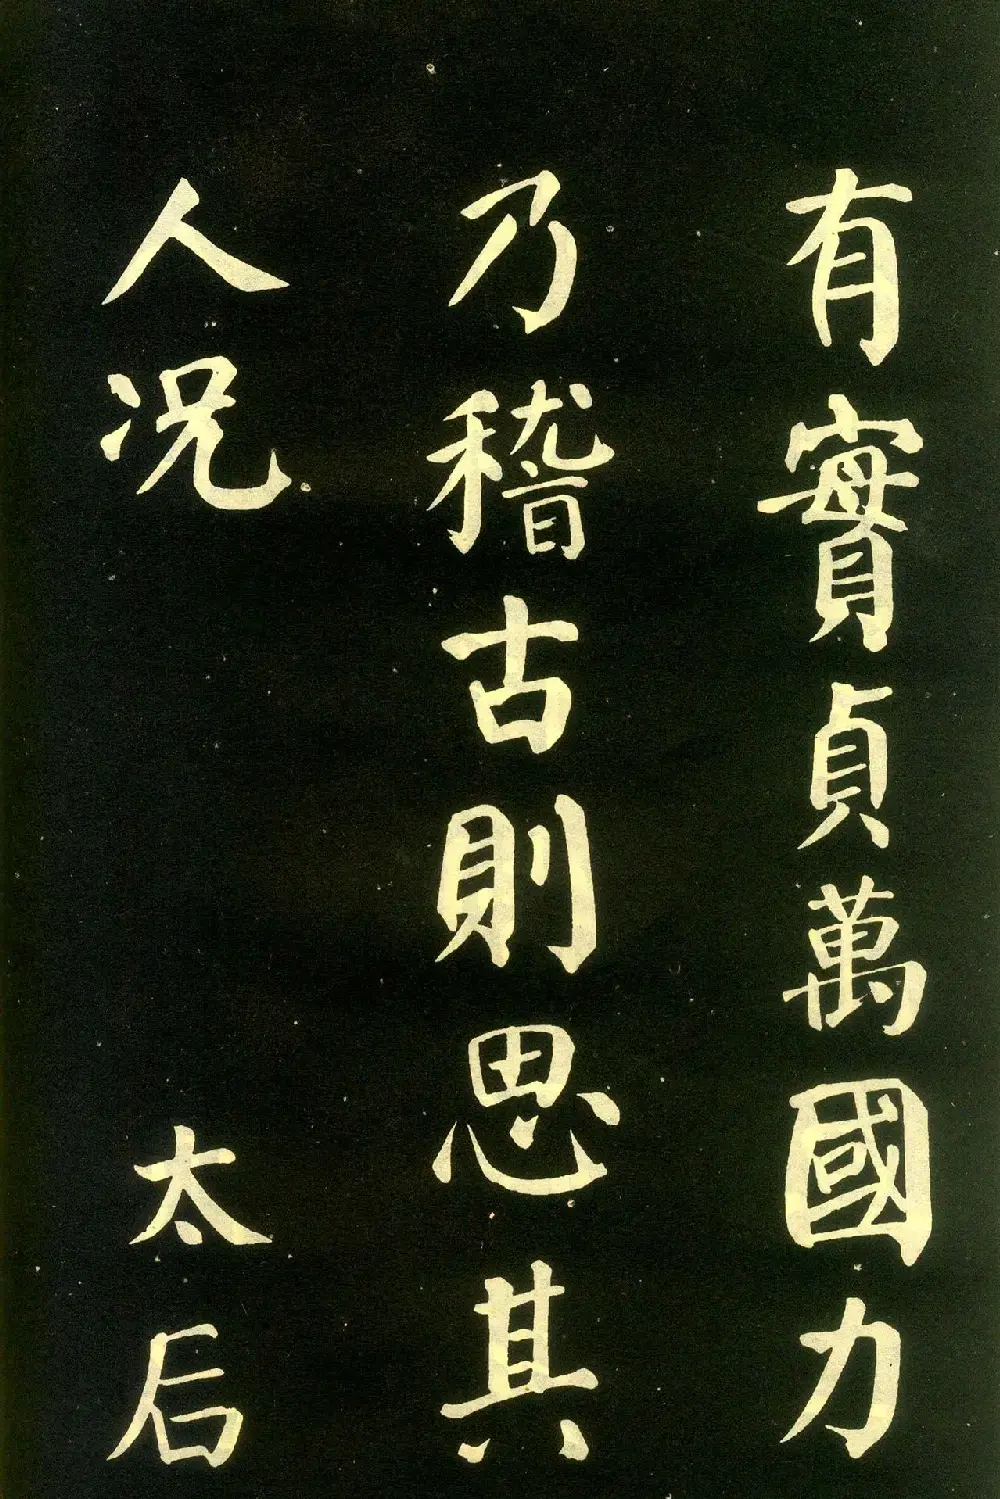 有實貞萬國力
乃稽古則思其
人况太后